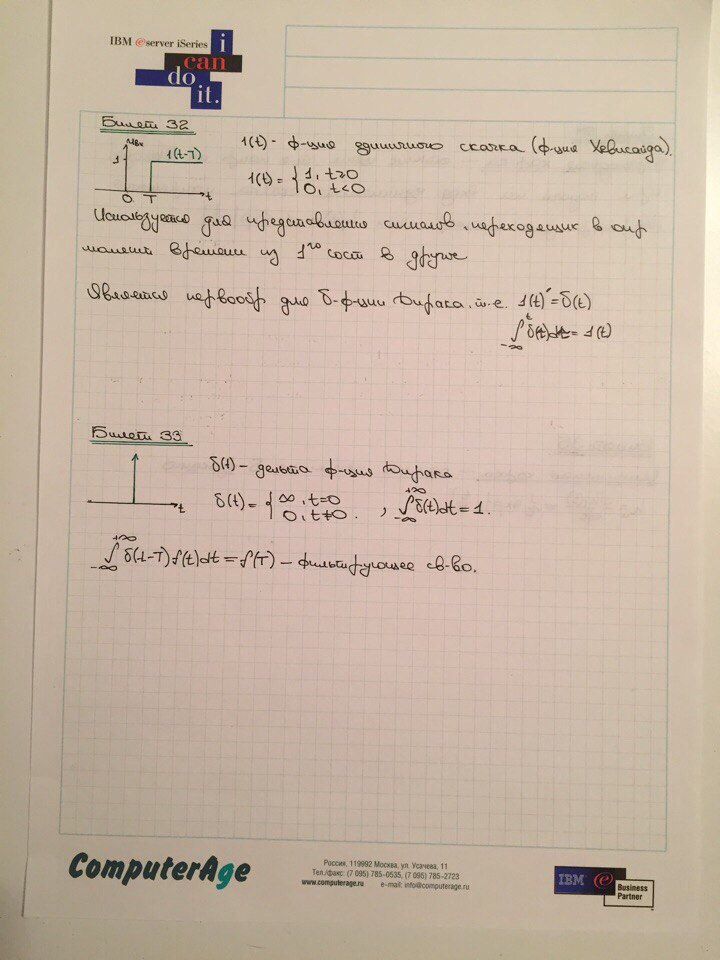 IBM eserver iSeries
i
can
do
it.
Билет 32
1(t) - ф-ция единичного скачка (ф-ция Хевисайда).
1
1(t-T)
0 T t
1(t) = { 1, t≥0
0, t<0
Используется для представления сигналов, переходящих в опр
момент времени из 1го сост в другое
Является первообр для δ-ф-ции Дирака, т.е. 1(t)' = δ(t)
∫_{-∞}^{t} δ(t)dt = 1(t)
Билет 33
δ(t) - дельта ф-ция Дирака
t
δ(t) = { ∞, t=0
0, t≠0. , ∫_{-∞}^{+∞} δ(t)dt = 1.
∫_{-∞}^{+∞} δ(t-T)f(t)dt = f(T) - фильтрующее св-во.
ComputerAge
Россия, 119992 Москва, ул. Усачева, 11
Тел./факс: (7 095) 785-0535, (7 095) 785-2723
www.computerage.ru e-mail: info@computerage.ru
IBM e
Business
Partner